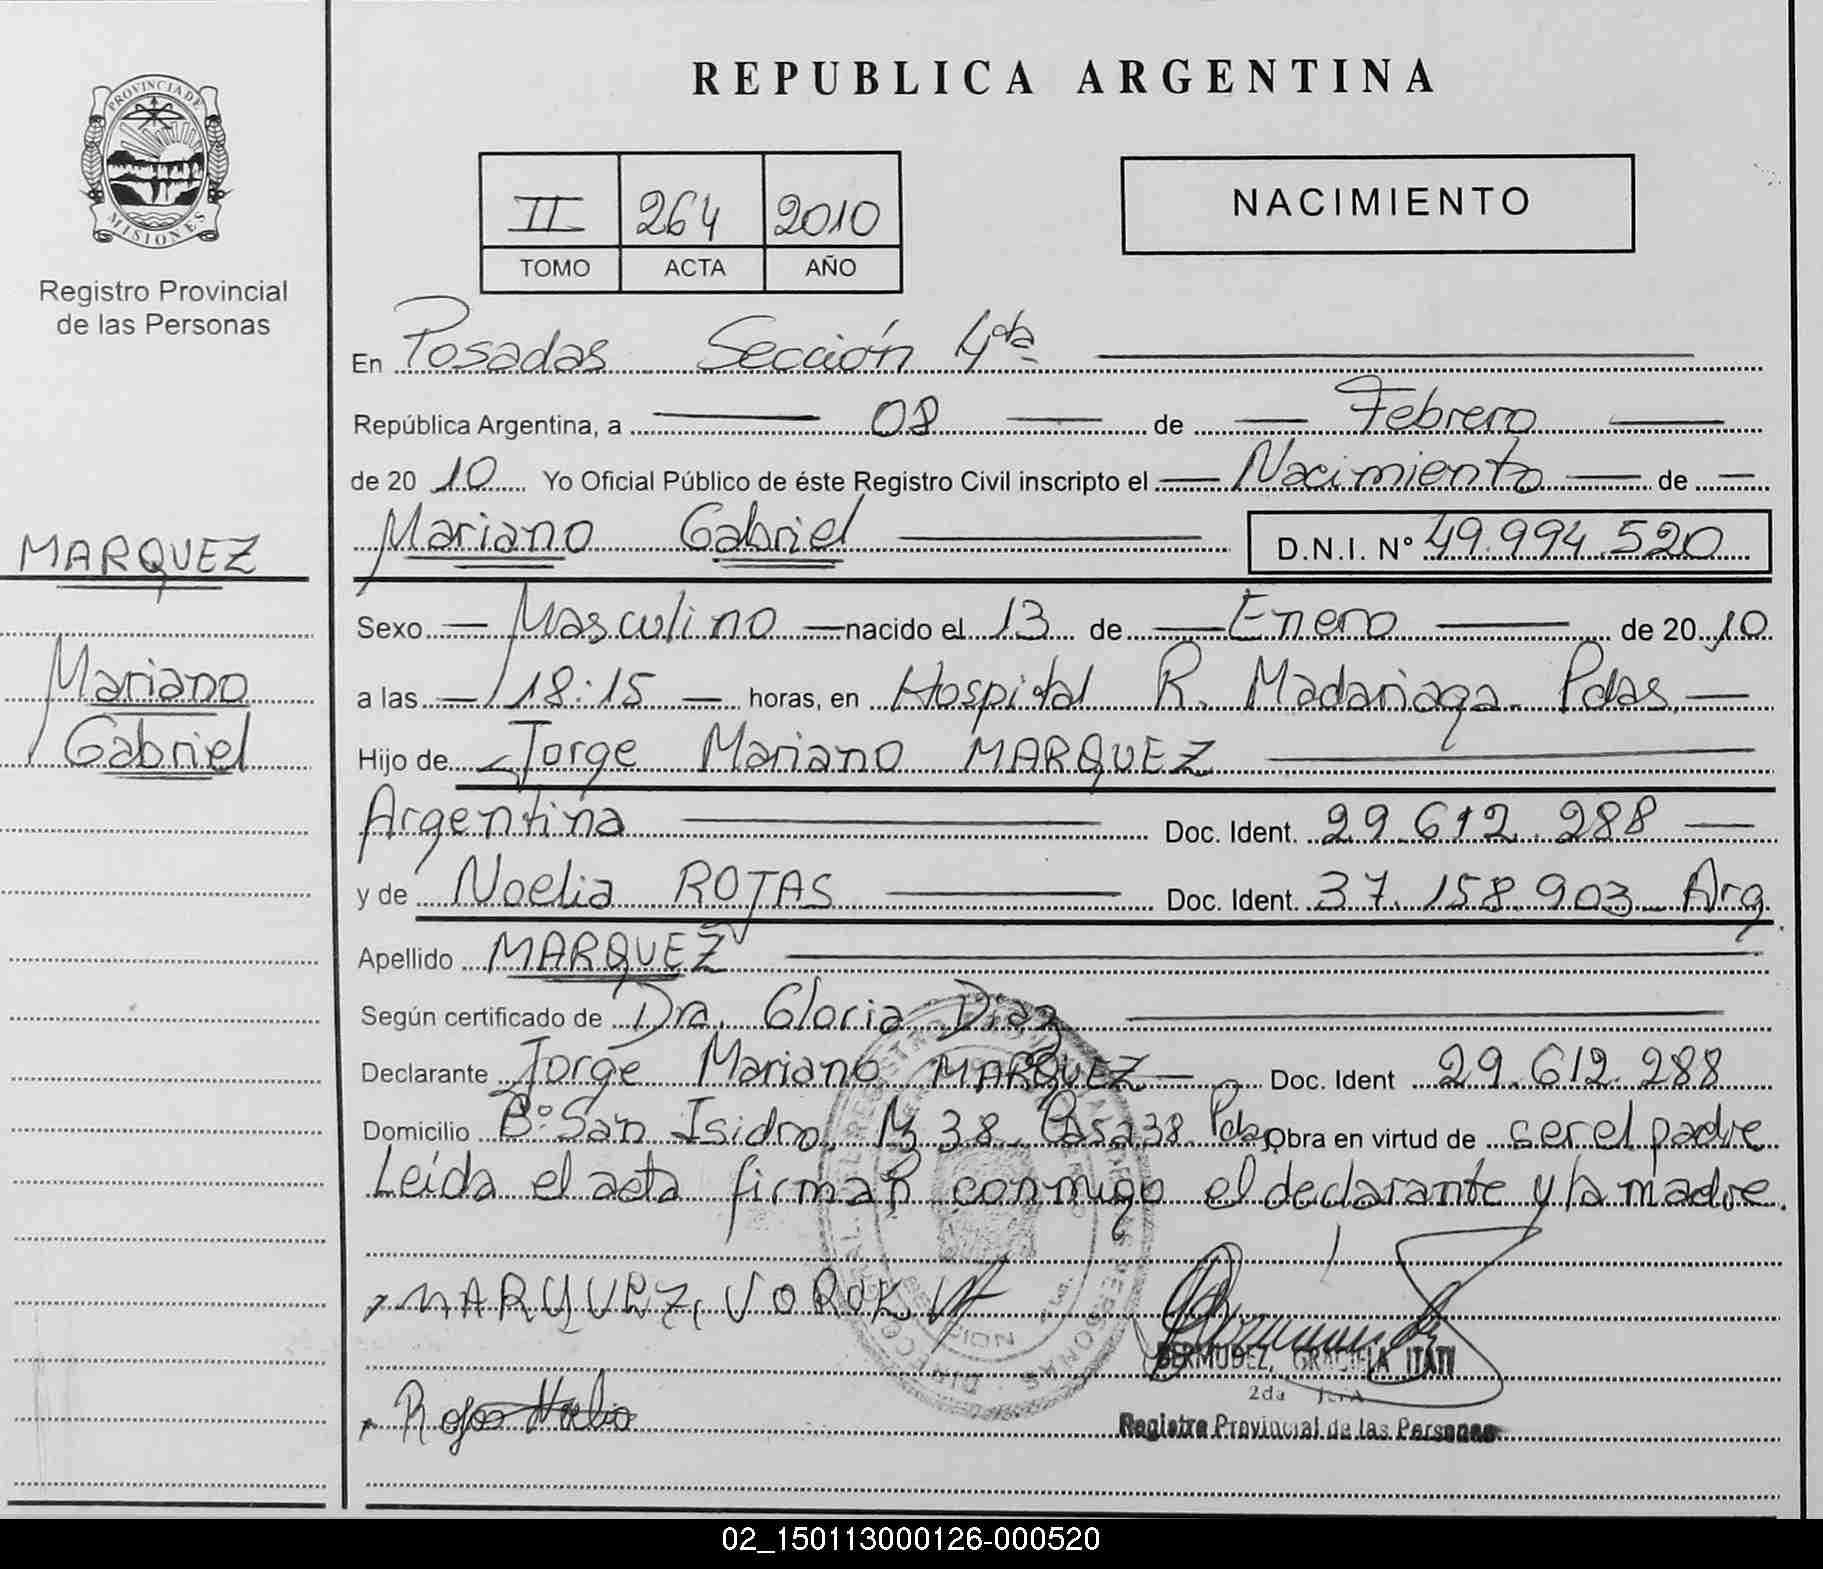 PROVINCIA DE
MISIONES
Registro Provincial
de las Personas
MARQUEZ
Mariano
Gabriel
REPUBLICA ARGENTINA
II 264 2010
TOMO ACTA AÑO
NACIMIENTO
En Posadas Sección 4da
República Argentina, a 08 de Febrero
de 20 10 Yo Oficial Público de éste Registro Civil inscripto el Nacimiento de
Mariano Gabriel D.N.I. Nº 49.994.520
Sexo Masculino nacido el 13 de Enero de 20 10
a las 18:15 horas, en Hospital R. Madariaga - Pdas.
Hijo de Jorge Mariano MARQUEZ
Argentina Doc. Ident. 29.612.288
y de Noelia ROJAS Doc. Ident. 37.158.903 Arg.
Apellido MARQUEZ
Según certificado de Dra. Gloria Diaz
Declarante Jorge Mariano MARQUEZ Doc. Ident 29.612.288
Domicilio Bº San Isidro. Mz 38. Casa 38 Pdas Obra en virtud de ser el padre
Leída el acta firman conmigo el declarante y la madre.
MARQUEZ, JORGE M
BERMUDEZ, GRACIELA ITATI
2da Jefa
Rojas Noelia
Registro Provincial de las Personas
02_150113000126-000520